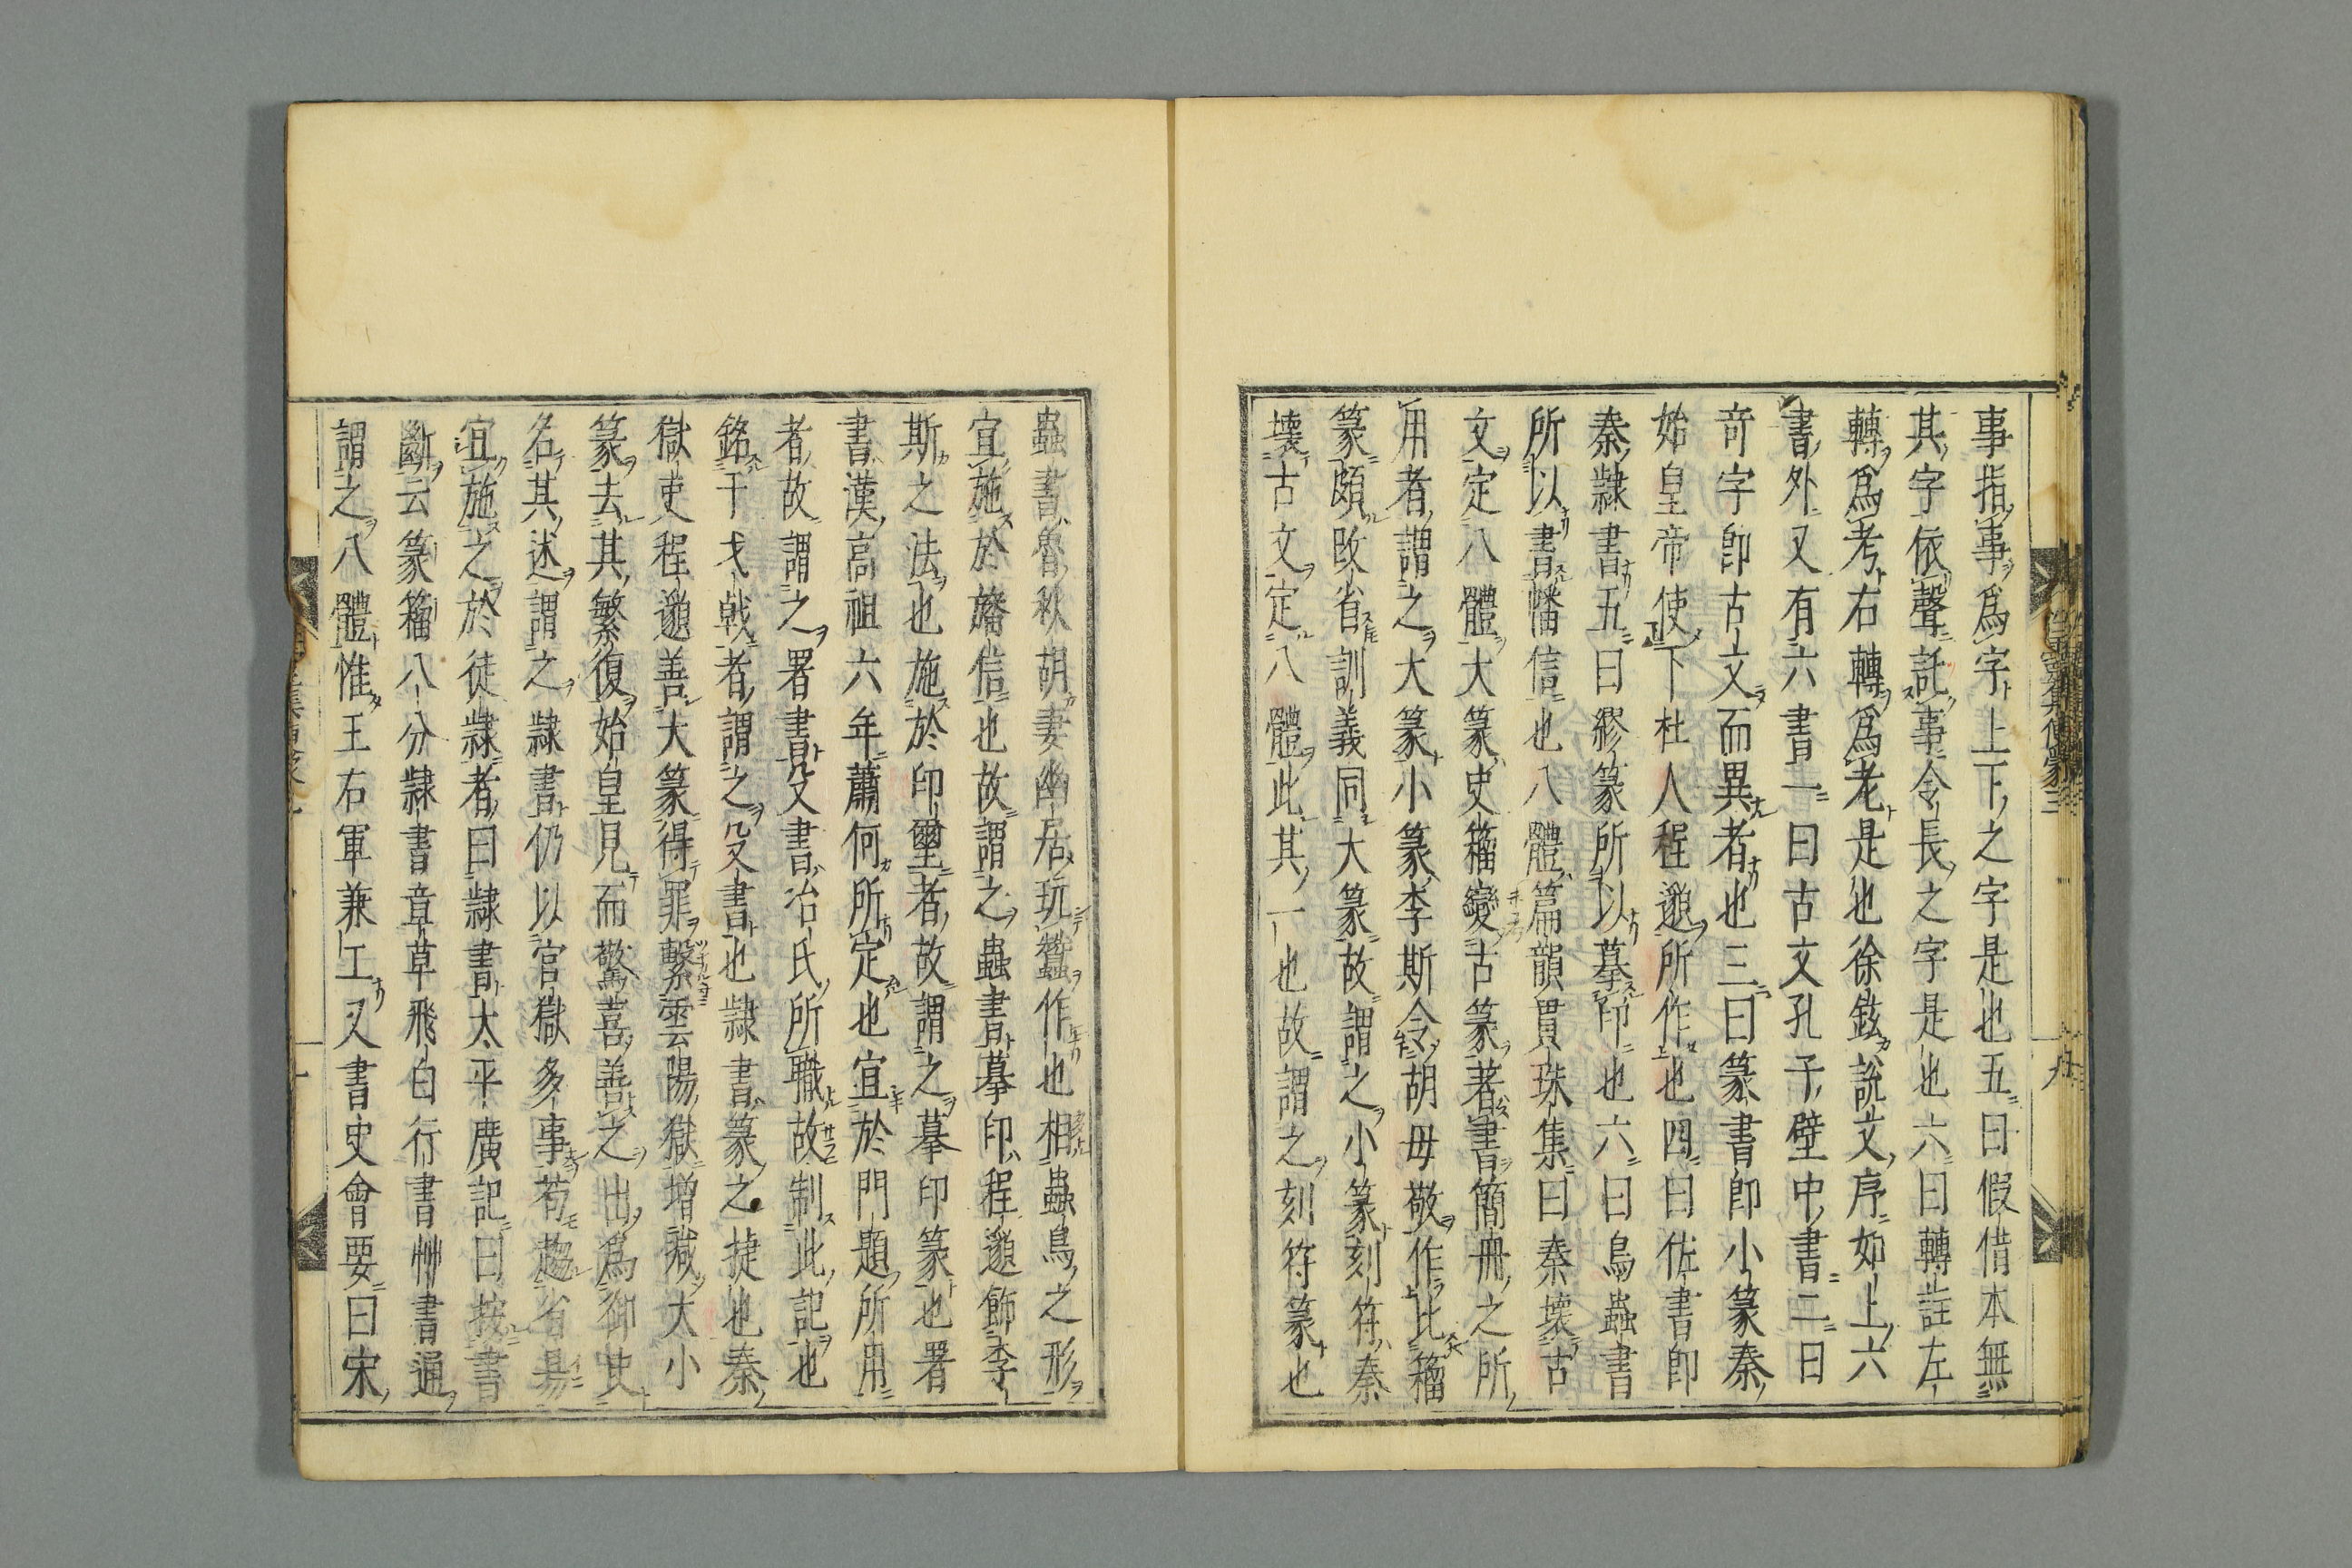 事指事爲字上下之字是也五曰假借本無
其字依聲託事令長之字是也六曰轉註左
轉爲考右轉爲老是也徐鉉說文序如上六
書外又有六書一曰古文孔子壁中書二曰
奇字卽古文而異者也三曰篆書卽小篆秦
始皇帝使下杜人程邈所作也四曰佐書卽
秦隷書五曰繆篆所以摹印也六曰鳥蟲書
所以書幡信也八體篇韻貫珠集曰秦壞古
文定八體大篆史籀變古篆著書簡冊之所
用者謂之大篆小篆李斯令胡毋敬作比籀
篆頗改省訓義同大篆故謂之小篆刻符秦
壞古文定八體此其一也故謂之刻符篆也
蟲書魯秋胡妻幽居玩蠶作也相蟲鳥之形
宜施於旛信也故謂之蟲書摹印程邈飾李
斯之法也施於印璽者故謂之摹印篆也署
書漢高祖六年蕭何所定也宜於門題所用
者故謂之署書殳書冶氏所職故制此記也
銘干戈戟者謂之殳書也隷書篆之捷也秦
獄吏程邈善大篆得罪繫雲陽獄增減大小
篆去其繁復始皇見而驚喜善之出爲御史
名其述謂之隷書仍以官獄多事苟趨省易
宜施之於徒隷者曰隷書太平廣記曰按書
斷云篆籀八分隷書章草飛白行書艸書通
謂之八體惟王右軍兼工又書史會要曰宋